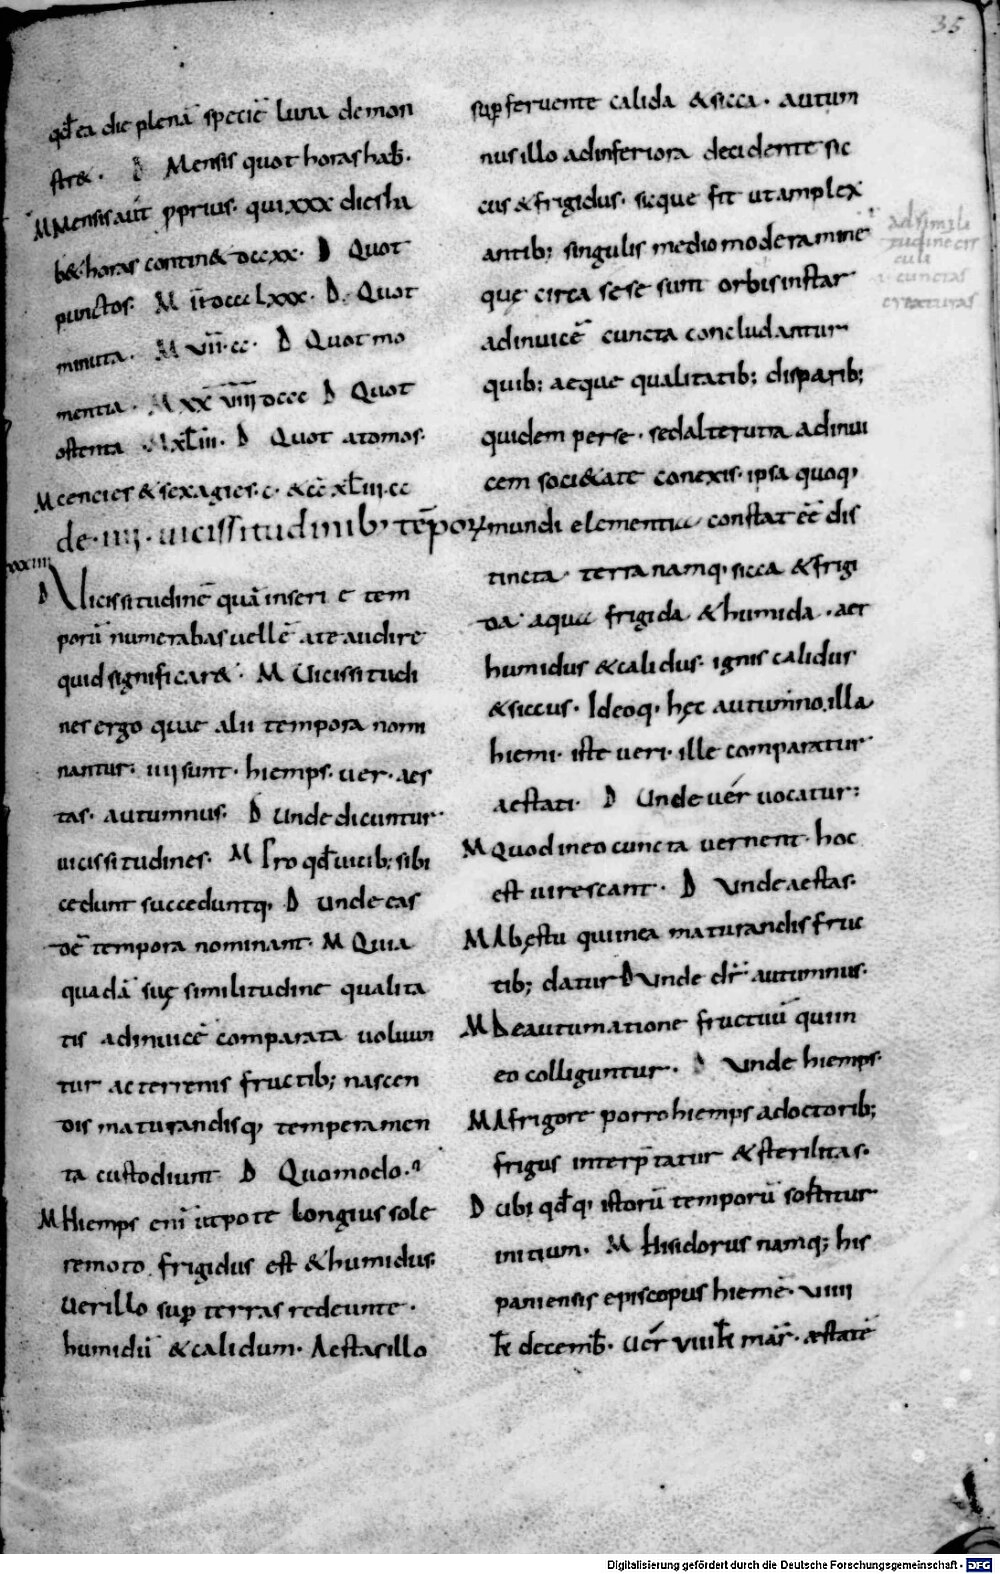 35
qđ ea die plenā speciē luna demon
str&. D Mensis quot horas hab̄.
M Mensis aut̄ p̱prius. qui xxx dies ha
b& horas contin& dccxx. D Quot
punctos. M īīdccclxxx. D. Quot
minuta. M v̄īī.cc. D Quot mo
menta. M x̄x̄v̄īīīīdccc D Quot
ostenta M xl̄iii. D Quot atomos.
M cencies & sexagies. c. & cc̄ xl̄iii. cc
de. iiii. uicissitudinib; tēpoꝝ
xxxiiii
D Vicissitudinē quā inseri ē tem
porū numerabas uellē a te audire
quid significar&. M Uicissitudi
nes ergo quae alii tempora nomi
nantur. iiii sunt. hiemps. uer. aes
tas. autumnus. D Unde dicuntur
uicissitudines. M Pro qđ uicib; sibi
cedunt succeduntq; D Unde eas
dē tempora nominant. M Quia
quadā suę similitudine qualita
tis adinuicē comparata uoluun
tur ac terrenis fructib; nascen
dis maturandisq; temperamen
ta custodiunt D Quomodo.
M Hiemps enī utpote longius sole
remoto frigidus est & humidus.
Uer illo sup̱ terras redeunte.
humidū & calidum. Aestas illo
sup̱feruente calida & sicca. autum
nus illo ad inferiora decidente sic
cus & frigidus. sicque fit ut amplex
antib; singulis medio moderaminē
quę circa se se sunt orbis instar
adinuicē cuncta concludantur
quib; aeque qualitatib; disparib;
quidem per se. sed alterutra adinui
cem soci&ate conexis. ipsa quoq;
mundi elementa constat eē dis
tincta. terra namq; sicca & frigi
da. aqua frigida & humida. aer
humidus & calidus. ignis calidus
& siccus. Ideoq; hęc autumno. illa
hiemi. iste ueri. ille comparatur
aestati. D Unde uér uocatur:
M Quod in eo cuncta uernent. hoc
est uirescant. D Unde aestas.
M Ab ęstu qui in ea maturandis fruc
tib; datur D Unde dr̄ autumnus.
M De autumatione fructuū qui in
eo colliguntur. D Unde hiemps.
M A frigore porro hiemps a doctorib;
frigus interp̄tatur & sterilitas.
D Ubi qđq; istorū temporū sortitur
initium. M Hisidorus namq; his
paniensis episcopus hiemē. viiii
kł decemb̄. Uér viii kł mar̄. æstatē
ad simili
tudine cir
culi
cunctas
creaturas
Digitalisierung gefördert durch die Deutsche Forschungsgemeinschaft - DFG